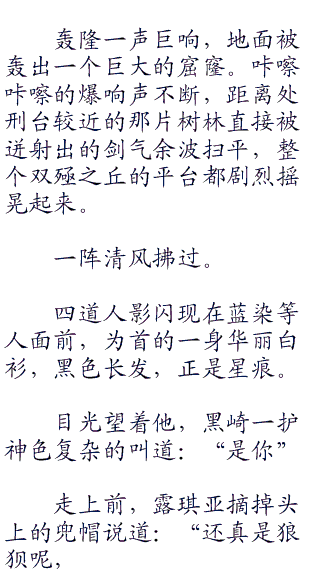 轰隆一声巨响，地面被
轰出一个巨大的窟窿。咔嚓
咔嚓的爆响声不断，距离处
刑台较近的那片树林直接被
迸射出的剑气余波扫平，整
个双殛之丘的平台都剧烈摇
晃起来。
一阵清风拂过。
四道人影闪现在蓝染等
人面前，为首的一身华丽白
衫，黑色长发，正是星痕。
目光望着他，黑崎一护
神色复杂的叫道：“是你”
走上前，露琪亚摘掉头
上的兜帽说道：“还真是狼
狈呢，